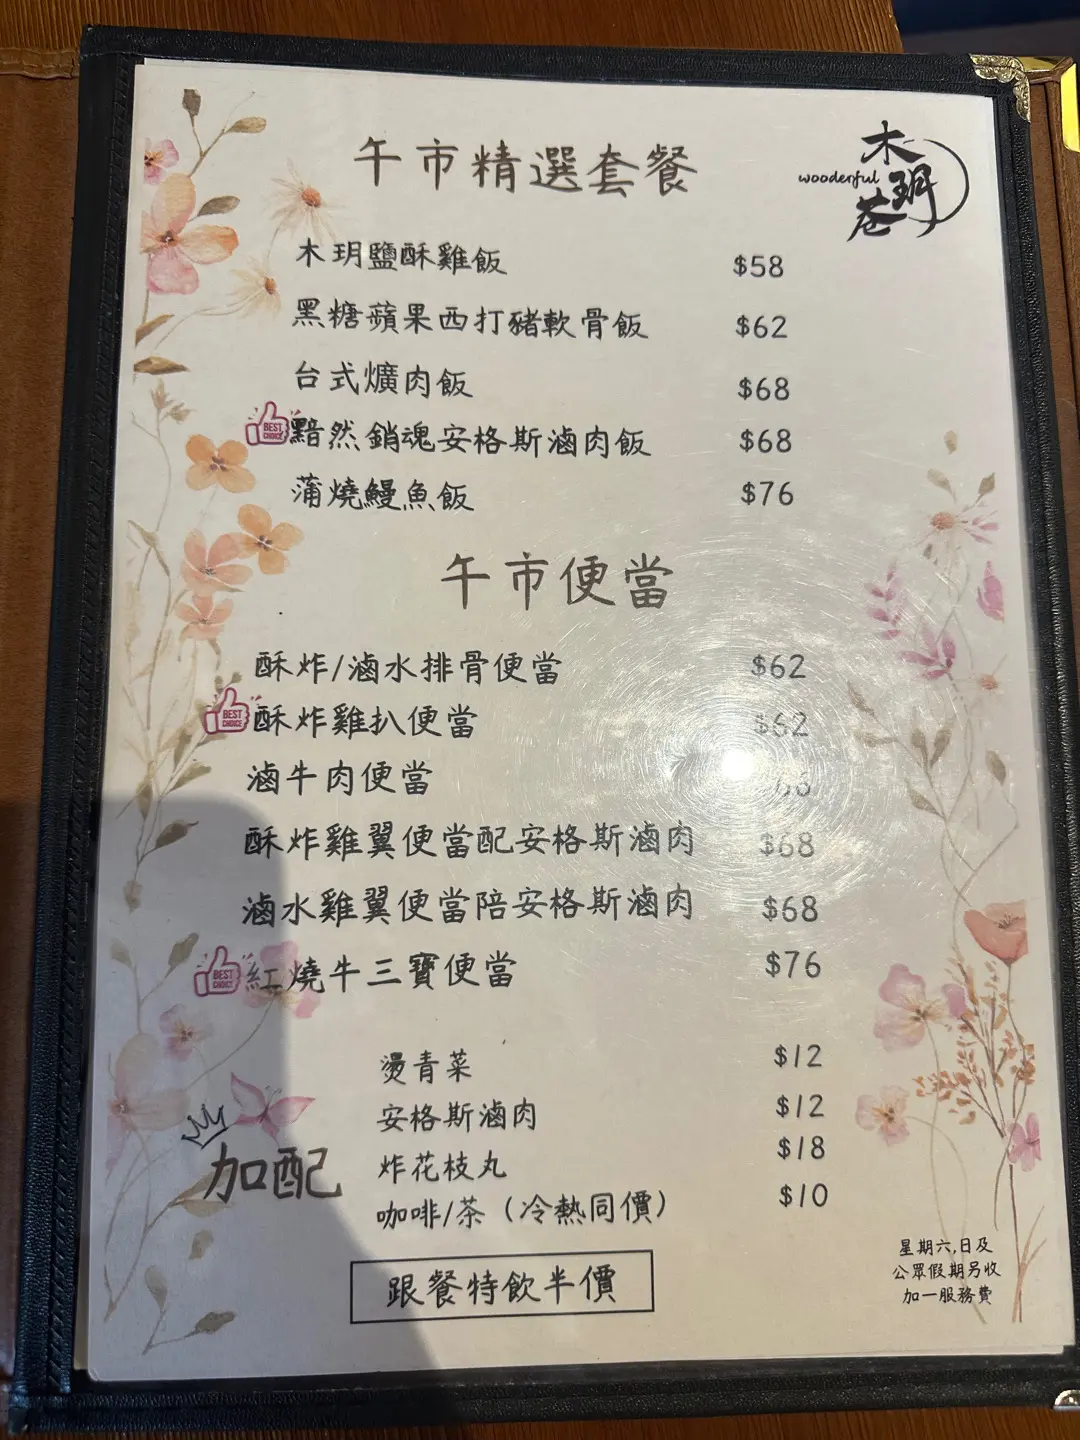 午市精選套餐
木玥蒼
wooderful
木玥鹽酥雞飯 $58
黑糖蘋果西打豬軟骨飯 $62
台式爌肉飯 $68
BEST CHOICE
黯然銷魂安格斯滷肉飯 $68
蒲燒鰻魚飯 $76
午市便當
酥炸/滷水排骨便當 $62
BEST CHOICE
酥炸雞扒便當 $62
滷牛肉便當
酥炸雞翼便當配安格斯滷肉 $68
滷水雞翼便當陪安格斯滷肉 $68
BEST CHOICE
紅燒牛三寶便當 $76
加配
燙青菜 $12
安格斯滷肉 $12
炸花枝丸 $18
咖啡/茶（冷熱同價） $10
跟餐特飲半價
星期六,日及
公眾假期另收
加一服務費